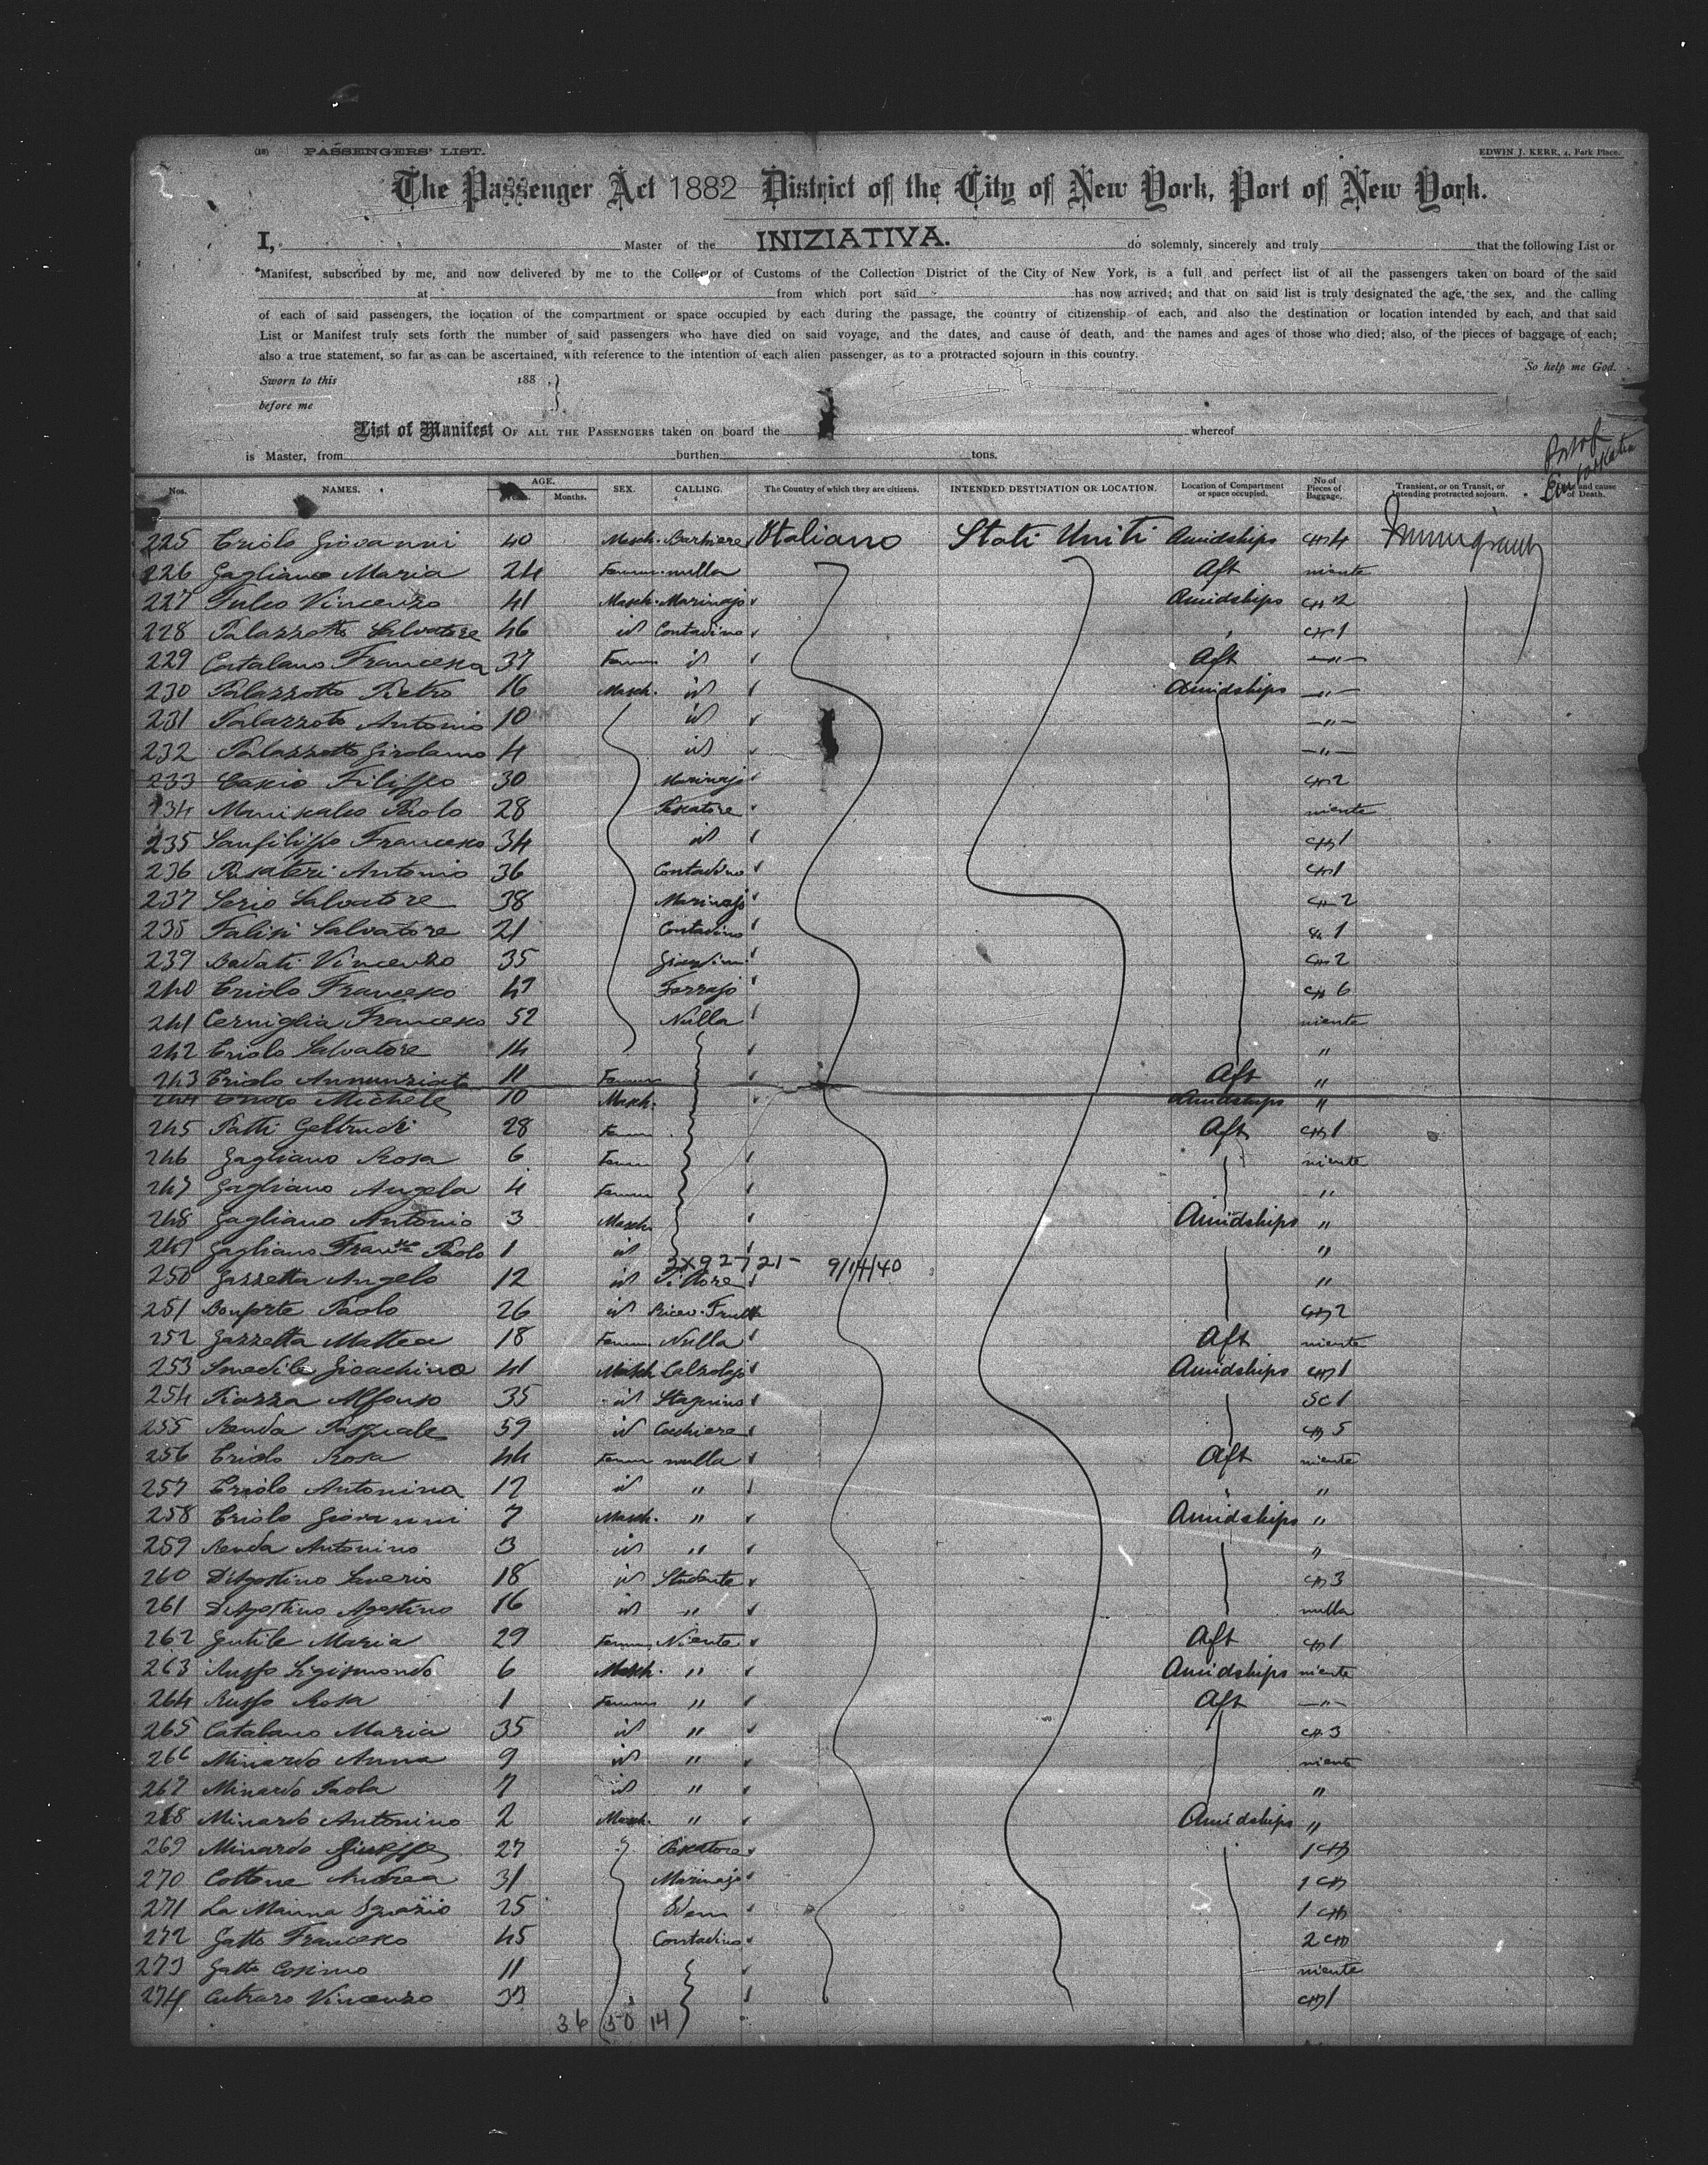 (18) PASSENGERS' LIST.
EDWIN J. KERR, 4, Park Place.
The Passenger Act 1882 District of the City of New York, Port of New York.
I, Master of the INIZIATIVA. do solemnly, sincerely and truly that the following List or
Manifest, subscribed by me, and now delivered by me to the Collector of Customs of the Collection District of the City of New York, is a full and perfect list of all the passengers taken on board of the said
at from which port said has now arrived; and that on said list is truly designated the age, the sex, and the calling
of each of said passengers, the location of the compartment or space occupied by each during the passage, the country of citizenship of each, and also the destination or location intended by each, and that said
List or Manifest truly sets forth the number of said passengers who have died on said voyage, and the dates, and cause of death, and the names and ages of those who died; also, of the pieces of baggage of each;
also a true statement, so far as can be ascertained, with reference to the intention of each alien passenger, as to a protracted sojourn in this country.
So help me God.
Sworn to this 188
before me
List of Manifest OF ALL THE PASSENGERS taken on board the whereof
is Master, from burthen tons.
Port of
Nos. NAMES. AGE. Months. SEX. CALLING. The Country of which they are citizens. INTENDED DESTINATION OR LOCATION. Location of Compartment or space occupied. No of Pieces of Baggage. Transient, or on Transit, or Intending protracted sojourn. and cause of Death.
225 Criolo Giovanni 40 Masch. Barbiere Italiano Stati Uniti Amidships 4
226 Gagliano Maria 24 Femm. nulla Aft niente
227 Fulco Vincenzo 41 Masch. Marinajo Amidships 2
228 Palazzotto Salvatore 46 id Contadino " 1
229 Catalano Francesca 37 Femm id Aft "
230 Palazzotto Pietro 16 Masch. id Amidships "
231 Palazzoto Antonio 10 id "
232 Palazzotto Girolamo 4 id "
233 Cascio Filippo 30 Marinajo 2
234 Maniscalco Paolo 28 Pescatore niente
235 Sanfilippo Francesco 34 id 1
236 Antonio 36 Contadino 1
237 Serio Salvatore 38 Marinajo 2
238 Salvatore 21 Contadino 1
239 Badati Vincenzo 35 2
240 Criolo Francesco 47 Ferrajo 6
241 Cerniglia Francesco 52 Nulla niente
242 Criolo Salvatore 14 "
243 Criolo Annunziata 11 Femm Aft "
244 Criolo Michele 10 Masch. Amidships "
245 Patti Geltrude 28 Femm Aft 1
246 Gagliano Rosa 6 Femm niente
247 Gagliano Angela 4 Femm "
248 Gagliano Antonio 3 Masch Amidships "
249 Gagliano Paolo 1 id "
2x92721- 9/14/40
250 Gazzetta Angelo 12 id Pittore "
251 Bonforte Paolo 26 id 2
252 Gazzetta Mattea 18 Femm. Nulla Aft niente
253 Smedile Gioachino 41 Masch Calzolajo Amidships 1
254 Piazza Alfonso 35 id Stagnino Sc 1
255 Renda Pasquale 59 id Cocchiere 5
256 Criolo Rosa 44 Femm nulla Aft niente
257 Criolo Antonina 12 id " "
258 Criolo Giovanni 7 Masch. " Amidships "
259 Renda Antonino 3 id " "
260 D'Agostino Saverio 18 id Studente 3
261 D'Agostino Agostino 16 id " nulla
262 Gentile Maria 29 Femm. Niente Aft 1
263 Russo Sigismondo 6 Masch. " Amidships niente
264 Russo Rosa 1 Femm " Aft "
265 Catalano Maria 35 id " 3
266 Minardo Anna 9 id " niente
267 Minardo Paola 7 id " "
268 Minardo Antonino 2 Masch. " Amidships "
269 Minardo Giuseppe 27 Pescatore 1
270 Cottone Andrea 31 Marinajo 1
271 La Manna Ignazio 25 Idem 1
272 Gatto Francesco 45 Contadino 2
273 Gatto Cosimo 11 niente
274 Cutraro Vincenzo 33 1
36 50 14